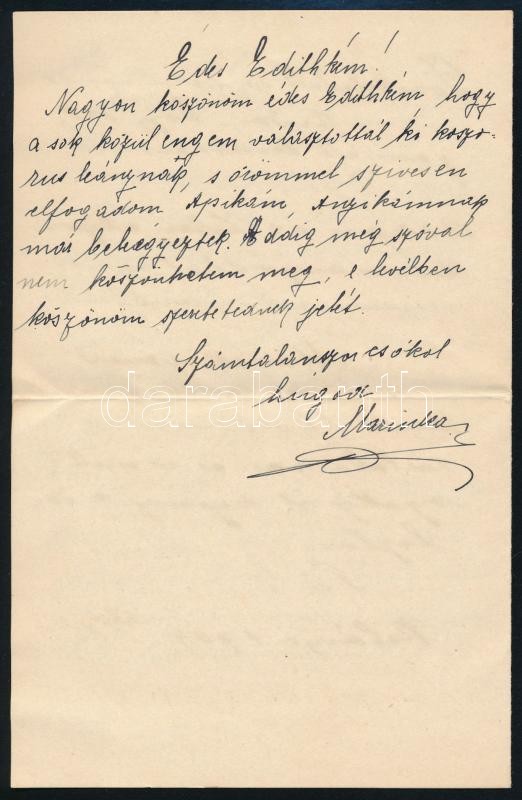 Édes Edithkém!
Nagyon köszönöm édes Edithkém, hogy
a sok közül engem választottál ki koszo-
rus leánynak, s örömmel szivesen
elfogadom Apikám Anyikámnak
már beleégyeztek. Addig még szóval
nem köszönhetem meg, e levélben
köszönöm szeretetednek jelét.
Számtalanszor csókol
hugod
Marinka
darabanth